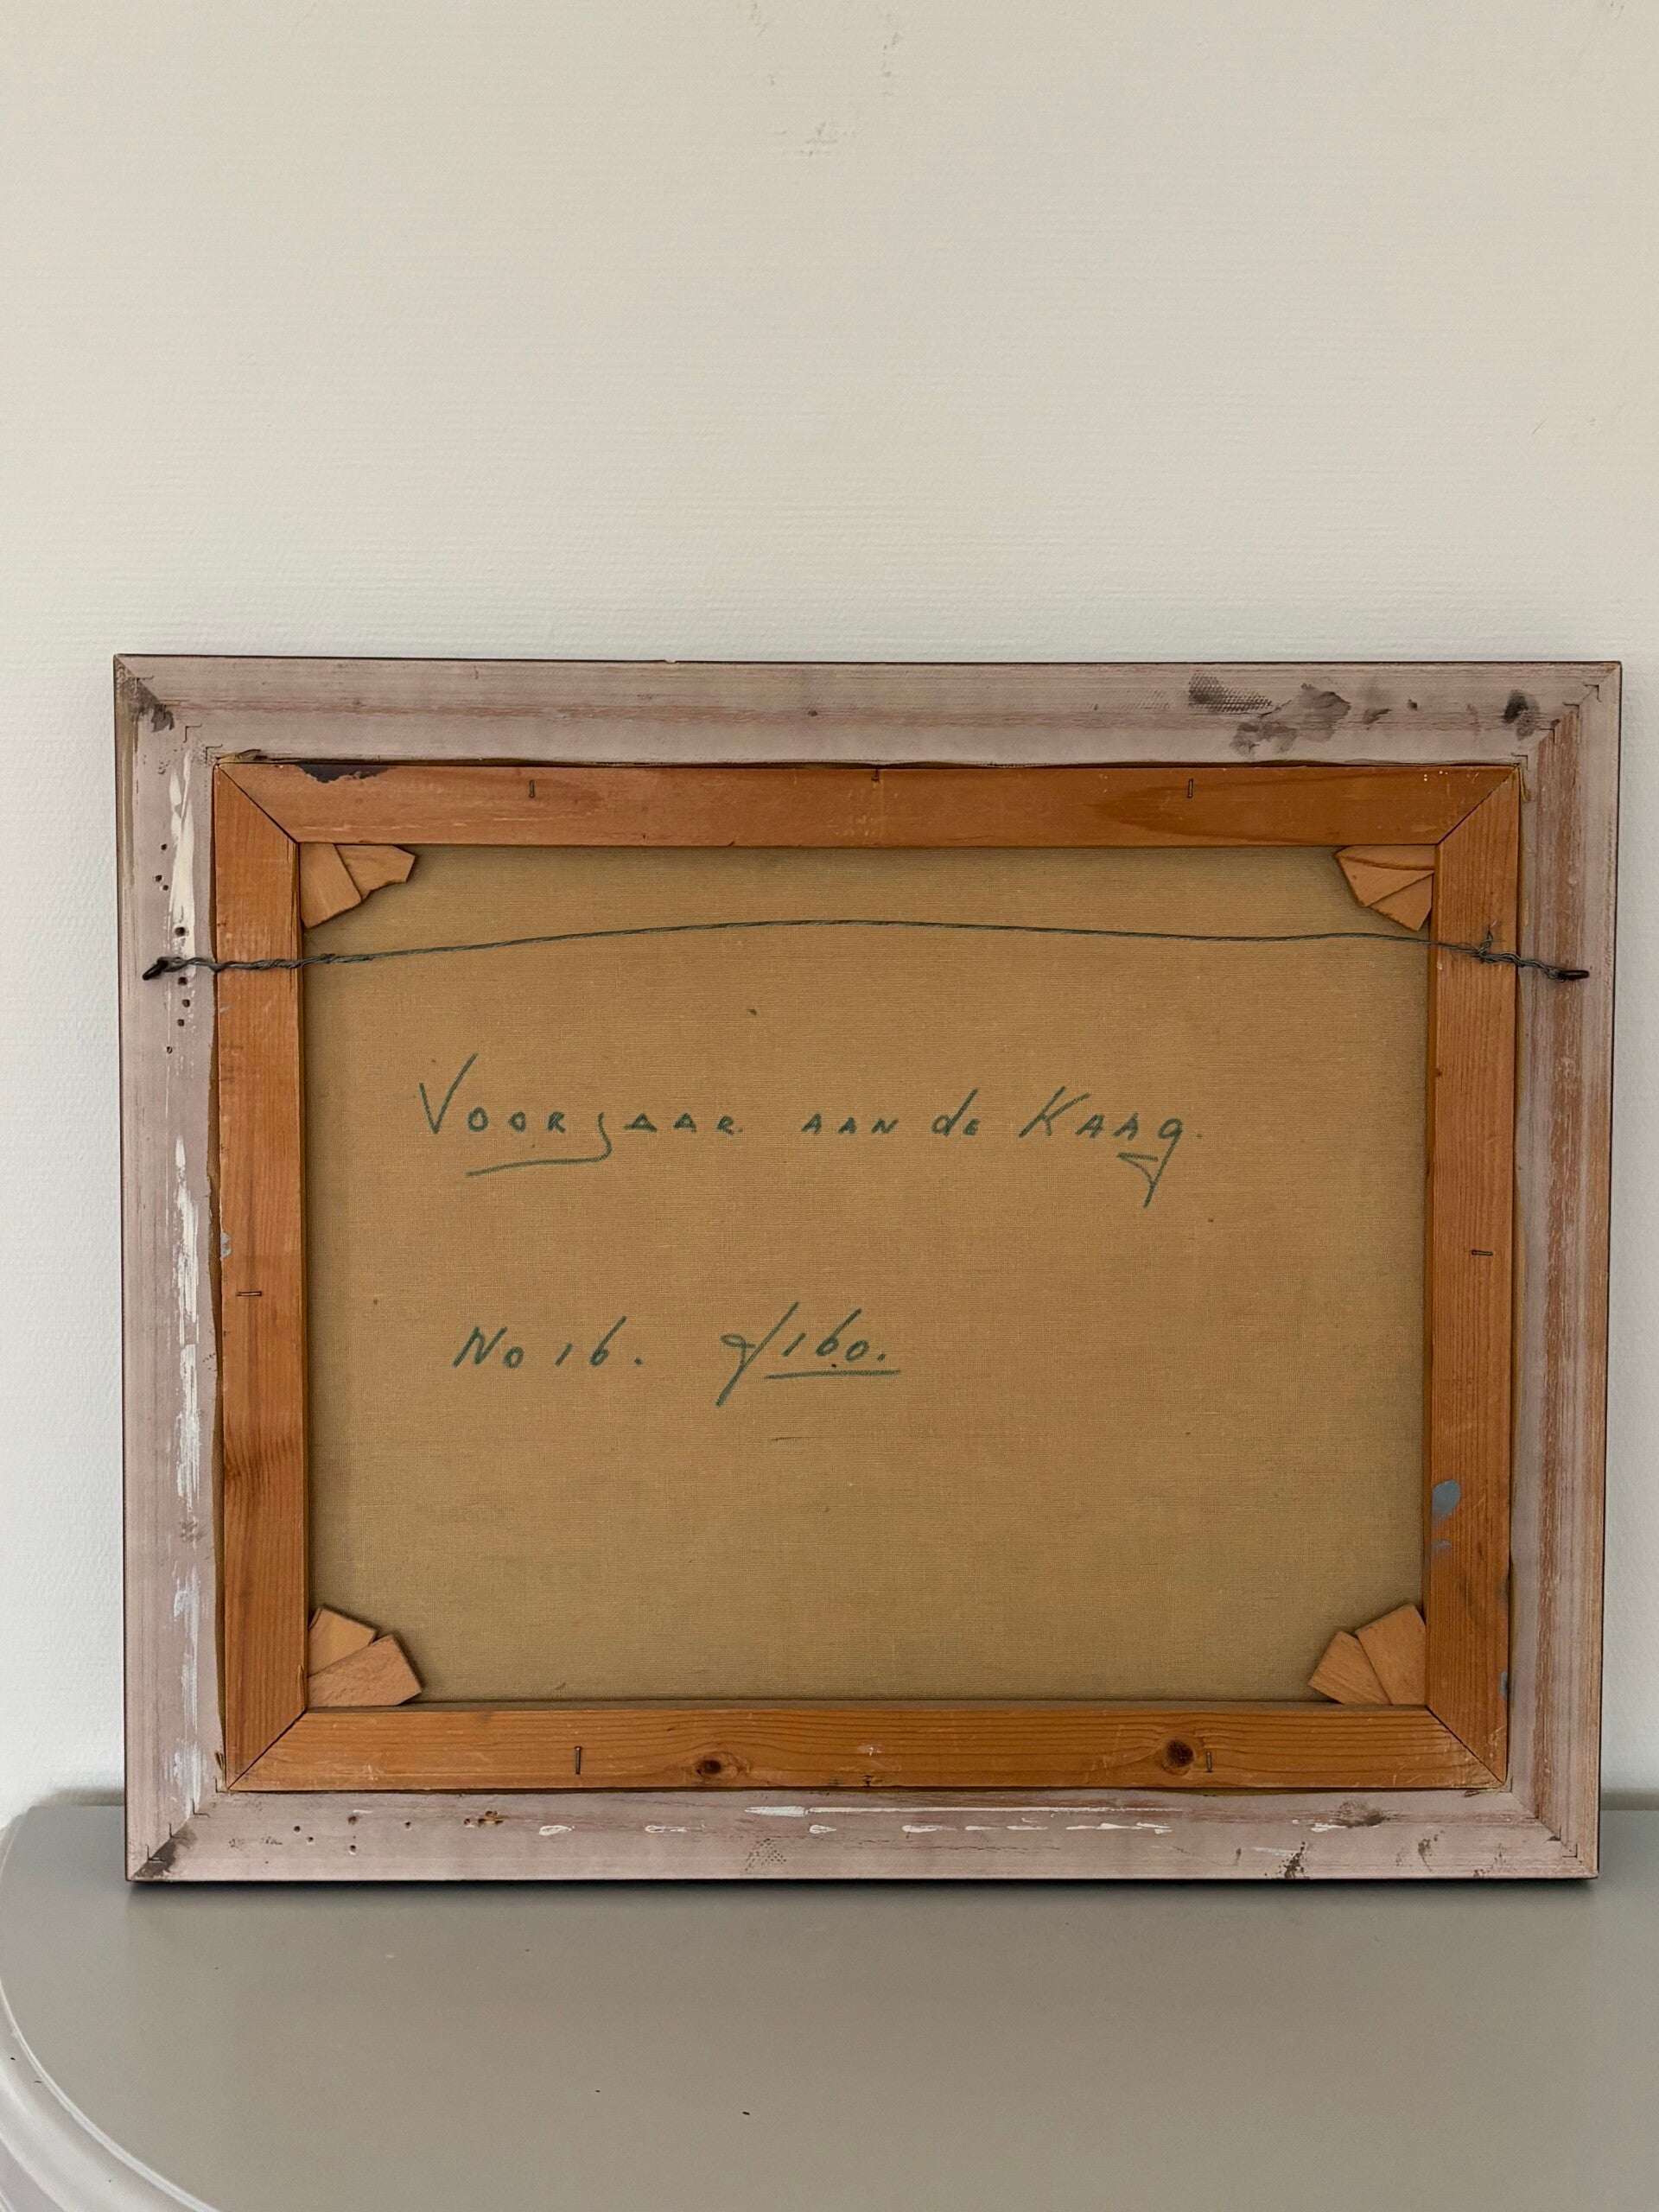 Voorjaar aan de Kaag.
No 16. ƒ160.